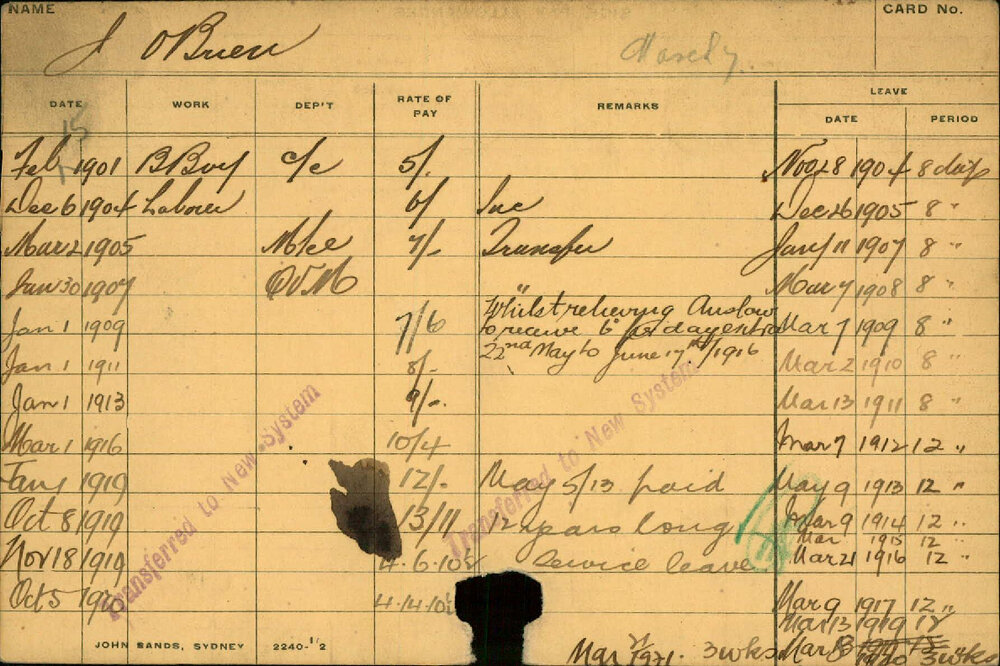 NAME
CARD No.
J OBrien
DATE WORK DEP'T RATE OF PAY REMARKS LEAVE
DATE PERIOD
15
Feb 1901 B Boy c/e 5/. Nov 28 1904 8 days
Dec 6 1904 Laborer 6/ Inc Dec 26 1905 8 "
Mar 2 1905 Mkee 7/- Transfer Jany 11 1907 8 "
Jan 30 1907 OVM Mar 7 1908 8 "
Whilst relieving Anslow
Jan 1 1909 7/6 to receive 6d per day extra Mar 7 1909 8 "
22nd May to June 17th/1916
Jan 1 1911 8/- Mar 2 1910 8 "
Jan 1 1913 9/-. Mar 13 1911 8 "
Mar 1 1916 10/4 Mar 7 1912 12 "
Jany 1919 12/- May 5/13 paid May 9 1913 12 "
Oct 8 1919 13/11 12 years long Mar 9 1914 12 "
Mar 1915 12
Nov 18 1919 4.6.10½ Service leave Mar 21 1916 12 "
Oct 5 4.14.10½ Mar 9 1917 12 "
Mar 13 1919 12
Mar 1921. 3 wks Mar 3 wks
Transferred to New System
Transferred to New System
JOHN SANDS, SYDNEY 2240-1/2